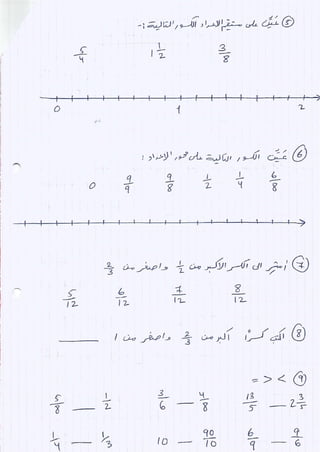 ⑤ عيّن على مستقيم الاعداد الكسور التالية :-
5/4   1 1/2   3/8
0   1   2
⑥ عيّن الكسور التالية على محور الاعداد :
0   9/9   9/8   1/2   1/4   6/8
⑦ أشر الى الكسر الاكبر من 1/2 واصغر من 2/3
5/12   6/12   7/12   8/12
⑧ اكتب كسرًا اكبر من 2/3 واصغر من 1 ____
⑨ < > =
5/8 __ 1/2   3/6 __ 4/8   13/5 __ 2 3/5
1/4 __ 1/3   10 __ 90/10   6/9 __ 9/6